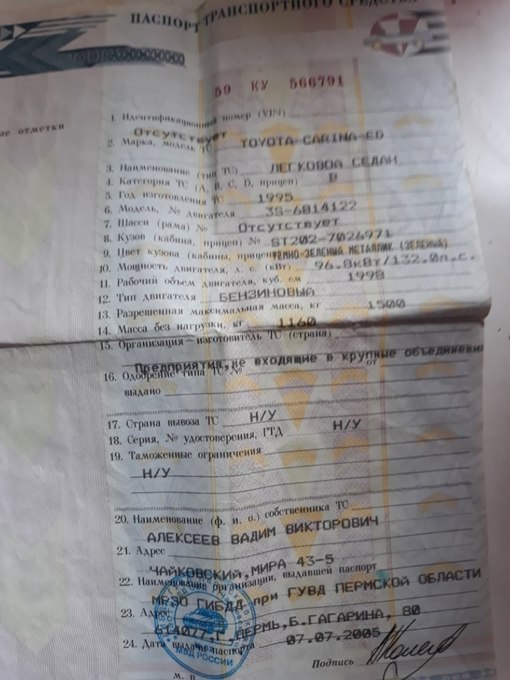 ПАСПОРТ ТРАНСПОРТНОГО СРЕДСТВА
59 КУ 566791
ые отметки
1. Идентификационный номер (VIN)
Отсутствует
2. Марка, модель ТС TOYOTA-CARINA-ED
3. Наименование (тип ТС) ЛЕГКОВОЙ СЕДАН
4. Категория ТС (А, В, С, D, прицеп) B
5. Год изготовления ТС 1995
6. Модель, № двигателя 3S-6814122
7. Шасси (рама) № Отсутствует
8. Кузов (кабина, прицеп) № ST202-7026971
9. Цвет кузова (кабины, прицепа) ТЕМНО-ЗЕЛЕНЫЙ МЕТАЛЛИК (ЗЕЛЕНЫЙ)
10. Мощность двигателя, л. с. (кВт) 96.8кВт/132.0л.с.
11. Рабочий объем двигателя, куб. см 1998
12. Тип двигателя БЕНЗИНОВЫЙ
13. Разрешенная максимальная масса, кг 1500
14. Масса без нагрузки, кг 1160
15. Организация—изготовитель ТС (страна)
Предприятия, не входящие в крупные объединени
16. Одобрение типа ТС № от
выдано
17. Страна вывоза ТС Н/У
18. Серия, № удостоверения, ГТД Н/У
19. Таможенные ограничения
Н/У
20. Наименование (ф. и. о.) собственника ТС
АЛЕКСЕЕВ ВАДИМ ВИКТОРОВИЧ
21. Адрес
ЧАЙКОВСКИЙ, МИРА 43-5
22. Наименование организации, выдавшей паспорт
МРЭО ГИБДД при ГУВД ПЕРМСКОЙ ОБЛАСТИ
23. Адрес
614077, Г.ПЕРМЬ, Б.ГАГАРИНА, 80
24. Дата выдачи паспорта 07.07.2005
МВД РОССИИ
Подпись
М. П.